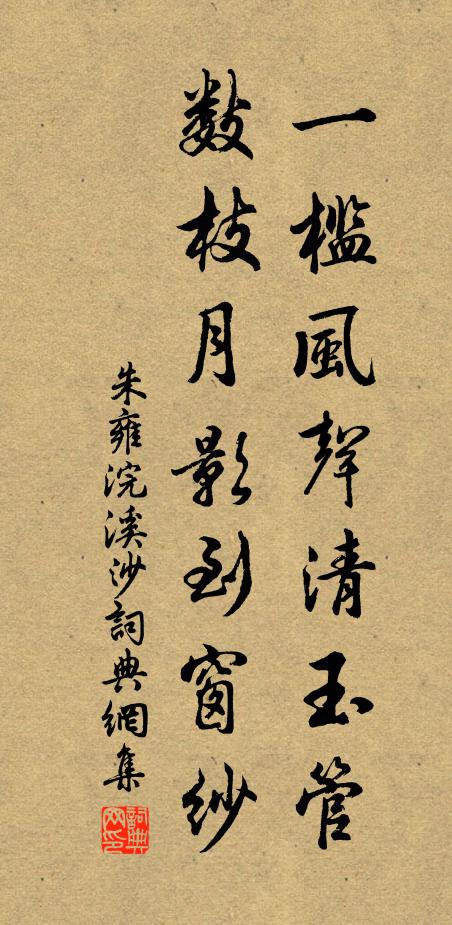 一檻風聲清玉管
數枝月影到窗紗
朱雍浣溪沙詞典網集
詞典网印